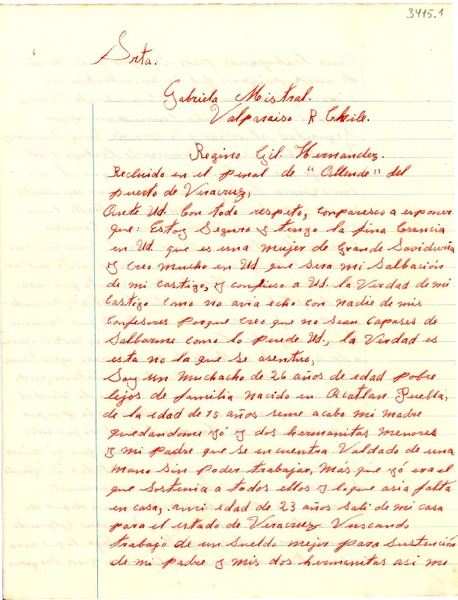 3415.1
Srta.
Gabriela Mistral.
Valparaiso R Chile.
Regino Gil. Hernandez.
Recluido en el penal de "Allende" del
puerto de Veracruz,
Ante Ud. Con todo respeto, comparesco a esponer
que: Estoy Seguro y tengo la fina Crencia
en Ud. que es una mujer de Grande Saviduria
y Creo mucho en Ud que sera mi Salbación
de mi castigo, y confieso a Ud. la Verdad de mi
Castigo como no aria echo con nadie de mis
Confesores porque creo que no sean Capases de
Salbarme como lo puede Ud., la Verdad es
esta no la que se asentro,
Soy un Muchacho de 26 años de edad pobre
lijos de familia nacido en Acatlan Puebla,
de la edad de 15 años seme acabo mi Madre
quedandome yó y dos hermanitas menores
y mi Padre que se encuentra Valdado de una
mano sin Poder trabajar, Mas que yó era el
que Sostenia a todos ellos y loque asia falta
en casa, ami edad de 23 años Sali de mi Casa
para el estado de Veracruz Vuscando
trabajo de un Sueldo Mejor para Sustención
de mi padre y mis dos hermanitas asi me